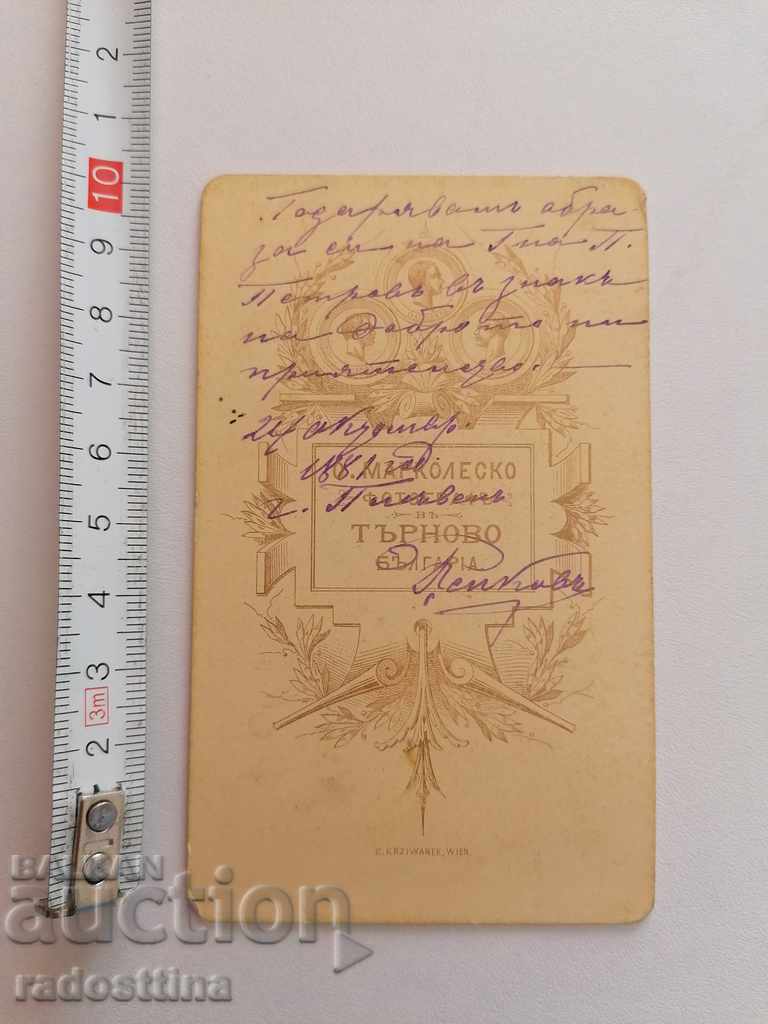 Подарявамъ обра-
за си на Гна П.
Петровъ въ знакъ
на доброто ни
приятелство.
24 октомвр.
1881 год.
г. Плѣвенъ
МАРКОЛЕСКО
ВЪ
ТЪРНОВО
БЪЛГАРІА
C. KRZIWANEK, WIEN.
2
1
10
9
8
7
6
5
4
3
3m
2
BALKAN
auction
radosttina